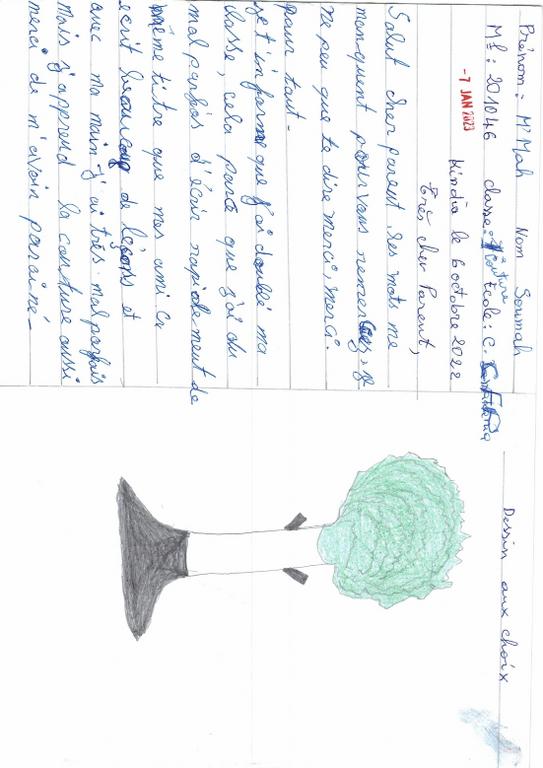 Prénom : M'Mah Nom Soumah
Mle : 201046 classe : 1e Couture Ecole : C.
- 7 JAN 2023
Kindia le 6 octobre 2022
Très cher Parent,
Salut cher parent, les mots me
manquent pour vous remerciez, je
ne peu que te dire merci, merci
pour tout.
je t'informe que j'ai doublé ma
classe, cela parce que j'ai du
mal parfois d'écrir rapidement de
même titre que mes ami. Ca
ecrit beaucoup de leçons et
avec ma main j'ai très mal parfois
Mais j'apprend la couture aussi
merci de m'avoir parainé -
Dessin aux choix